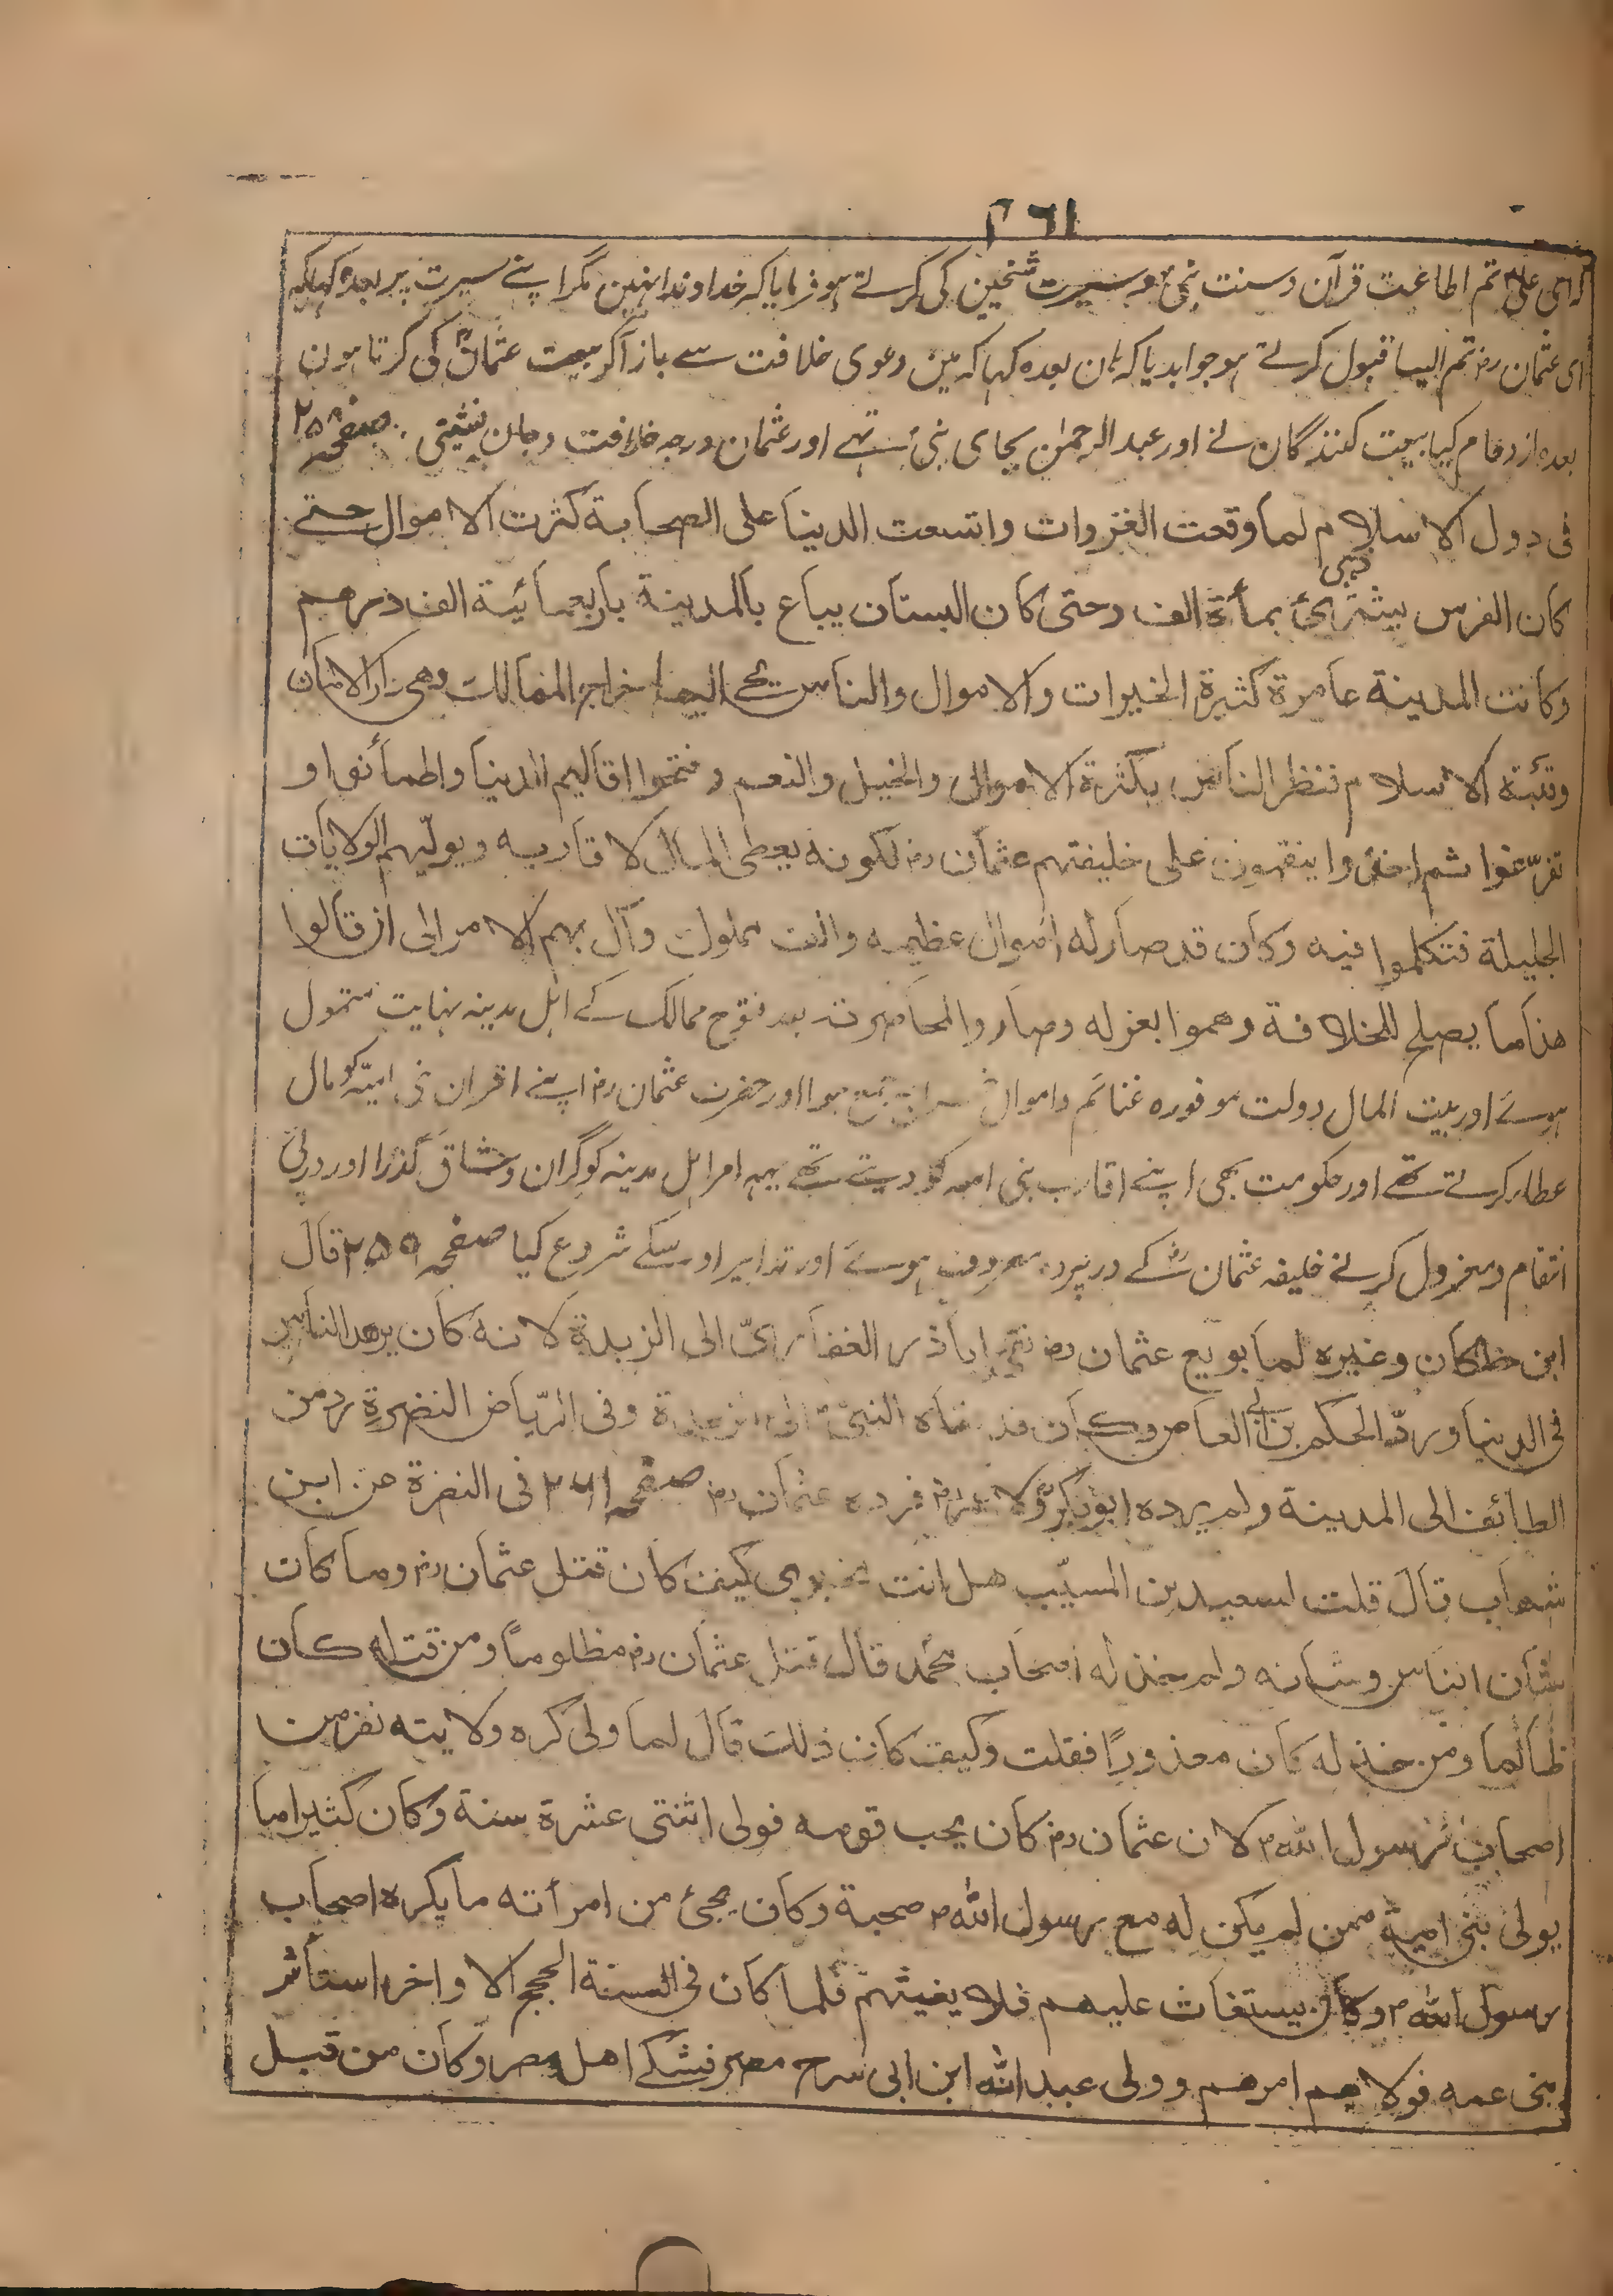 ۲۶۱
کہ ای علی تم اطاعت قرآن و سنت نبی و سیرت شیخین کی کرتے ہو فرمایا کہ خداوندا نہین مگر اپنے سیرت پر بعدہ کہا کہ
ای عثمان رض تم ایسا قبول کرتے ہو جوابدیا کہ ہان بعدہ کہا کہ مین دعوی خلافت سے باز آکر بیعت عثمان کی کرتا ہون
بعدہ ازدحام کیا بیعت کنندگان نے اور عبد الرحمٰن بجای نبی تہے اور عثمان درجہ خلافت و جان نشینی صفحہ ۲۵۸
فی دول الاسلام لما وقعت الغزوات واتسعت الدنیا علی الصحابة کثرت الاموال حتے
کان الفرس یشتری بمأة الف وحتی کان البستان یباع بالمدینة باربعمائیة الف درهم
وکانت المدینة عامرة کثیرة الخیرات والاموال والناس یجی الیها خراج الممالک وهی دار الامان
وقبة الاسلام فنظر الناس بکثرة الاموال والخیل والنعم وفتحوا اقالیم الدنیا واطمأنوا و
تفرّغوا ثم اخذوا ینقمون علی خلیفتهم عثمان رض لکونه یعطی المال لاقاربه ویولّیهم الولایات
الجلیلة فتکلموا فیه وکان قد صار له اموال عظیمه والف مملوک وآل بهم الامر الی ان قالوا
هذا ما یصلح للخلافة وهموا بعزله وصاروا لمحاصرته بعد فتوح ممالک کے اہل مدینہ نہایت متمول
ہوئے اور بیت المال دولت موفورہ غنائم و اموال جمع ہوا اور حضرت عثمان رض اپنے اقران بنی امیّہ کو مال
عطا کرتے تھے اور حکومت بھی اپنے اقارب بنی امیہ کو دیتے تھے یہہ امر اہل مدینہ کو گران و شاق گذرا اور درپی
انتقام و معزول کرنے خلیفہ عثمان کے درپردہ مصروف ہوئے اور تدابیر اوسکے شروع کیا صفحہ ۲۵۹ قال
ابن خلکان وغیره لما بویع عثمان رض نفی اباذر الغفاریّ الی الزبدة لانه کان یزهد الناس
فی الدنیا وردّ الحکم بن ابی العاص وکان قد نفاه النبی الی الزبدة وفی الریّاض النضرة رد من
الطائف الی المدینة ولم یرده ابو بکر ولا عمر رض فرده عثمان رض صفحہ ۲۶۱ فی النضرة عن ابن
شهاب قال قلت لسعید بن المسیّب هل انت مخبری کیف کان قتل عثمان رض وما کان
شان الناس وشانه ولم خذله اصحاب محمد قال قتل عثمان رض مظلوماً ومن قتله کان
ظالما ومن خذله کان معذورًا فقلت وکیف کان ذلک قال لما ولی کره ولایته نفر من
اصحاب رسول الله م لان عثمان رض کان یحب قومه فولی اثنتی عشرة سنة وکان کثیرا ما
یولی بنی امیة ممن لم یکن له مع رسول الله م صحبة وکان یجئ من امرأته ما یکره اصحاب
رسول الله م وکان یستغاث علیهم فلا یغیثهم فلما کان فی السنة الحجج الاواخر استأثر
بنی عمه فولاهم امرهم وولی عبد الله ابن ابی سرح مصر فشکے اهل مصر وکان من قبل